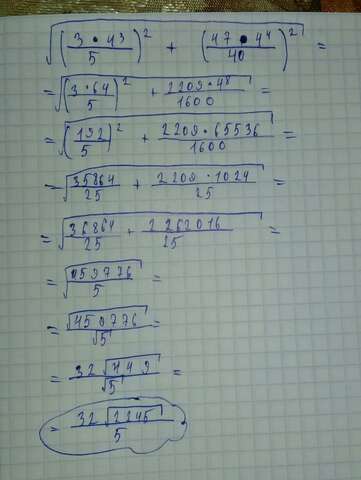 √((3 • 4³ / 5)² + (47 • 4⁴ / 40)²) =
= √((3 • 64 / 5)² + 2209 • 4⁸ / 1600) =
= √((192 / 5)² + 2209 • 65536 / 1600) =
= √(35864 / 25 + 2209 • 1024 / 25) =
= √(36864 / 25 + 2262016 / 25) =
= √(459776 / 5) =
= √459776 / √5 =
= 32 √449 / √5 =
= 32 √2245 / 5